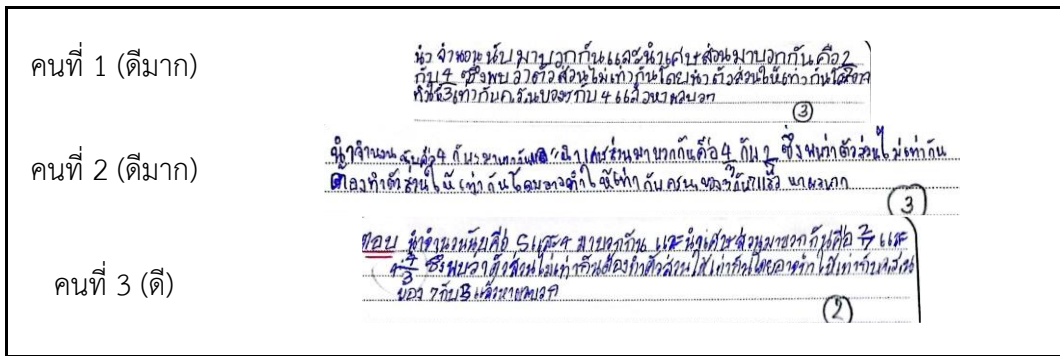 คนที่ 1 (ดีมาก)
นำจำนวนนับมาบวกกันและนำเศษส่วนมาบวกกัน คือ 2
กับ 4 ซึ่งพบว่าตัวส่วนไม่เท่ากันโดยทำตัวส่วนให้เท่ากัน
เท่ากับ ค.ร.น. ของ กับ 4 แล้วหาผลบวก
3
คนที่ 2 (ดีมาก)
นำจำนวนนับคือ 4 กับ มาบวกกัน นำเศษส่วนมาบวกกันคือ 4 กับ 2 ซึ่งพบว่าตัวส่วนไม่เท่ากัน
ต้องทำตัวส่วนให้เท่ากันโดยอาจทำให้เท่ากับ ครน. ของ 3 กับ 7 แล้ว หาผลบวก
3
คนที่ 3 (ดี)
ตอบ นำจำนวนนับคือ 5 และ 4 มาบวกกัน และนำเศษส่วนมาบวกกันคือ 2/7 และ
4/3 ซึ่งพบว่าตัวส่วนไม่เท่ากันต้องทำตัวส่วนให้เท่ากันโดยอาจทำให้เท่ากับ
ของ 7 กับ 3 แล้วหาผลบวก
2